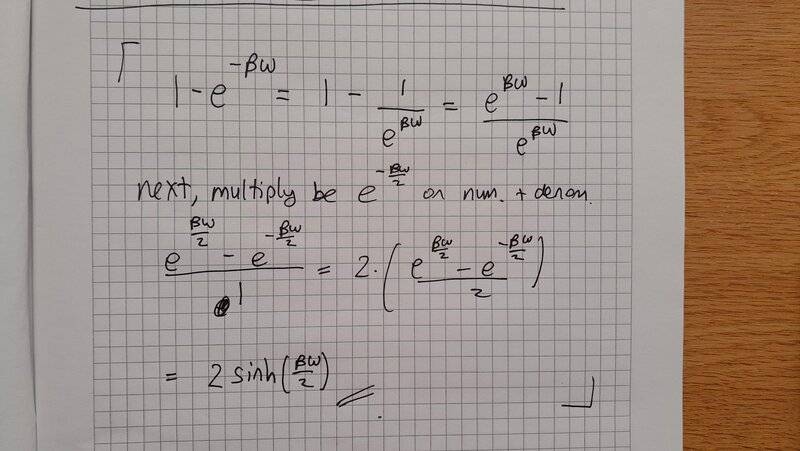 1 - e^{-βω} = 1 - \frac{1}{e^{βω}} = \frac{e^{βω} - 1}{e^{βω}}
next, multiply be e^{-\frac{βω}{2}} on num. + denom.
\frac{e^{\frac{βω}{2}} - e^{-\frac{βω}{2}}}{1} = 2 · \left( \frac{e^{\frac{βω}{2}} - e^{-\frac{βω}{2}}}{2} \right)
= 2 sinh(\frac{βω}{2})